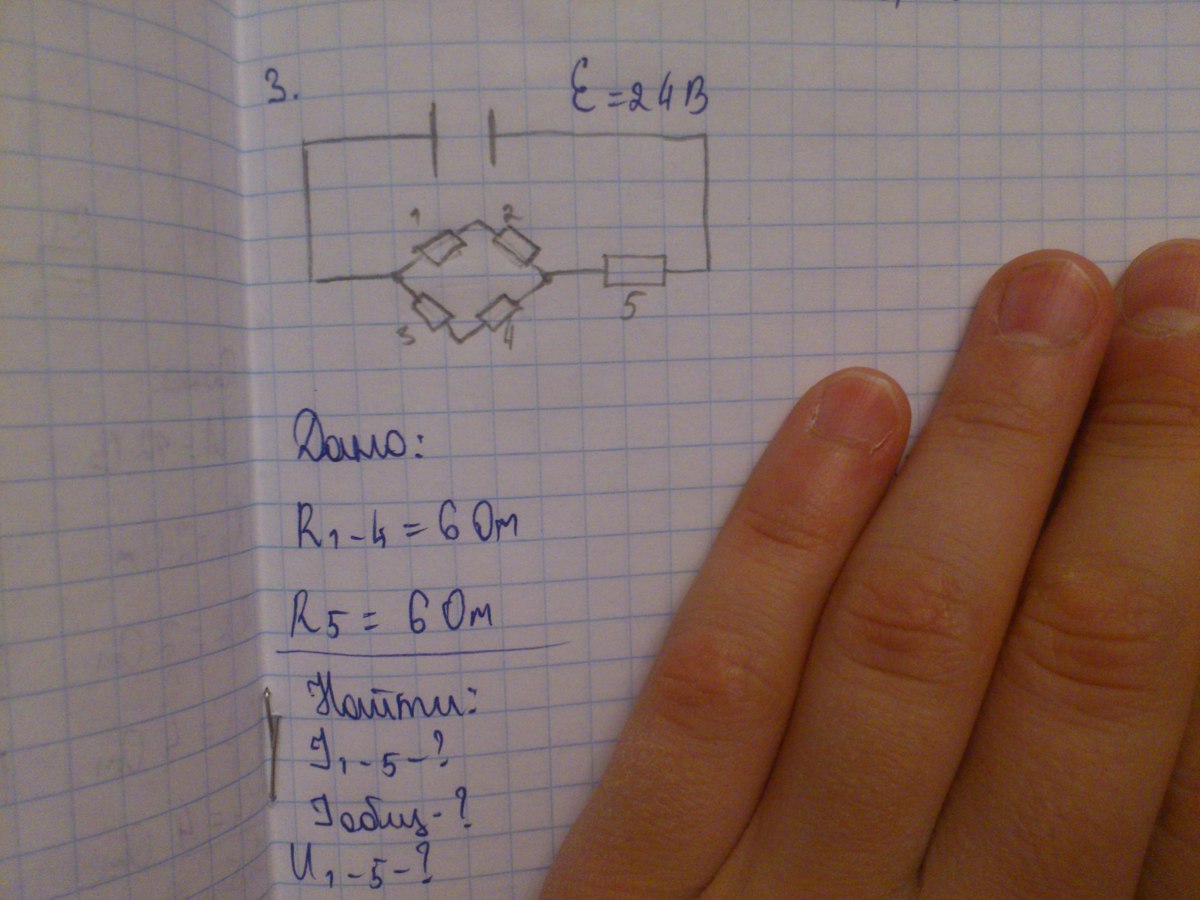 3.
Ɛ = 24 В
1
2
3
4
5
Дано:
R₁₋₄ = 6 Ом
R₅ = 6 Ом
Найти:
I₁₋₅ - ?
Iобщ - ?
U₁₋₅ - ?